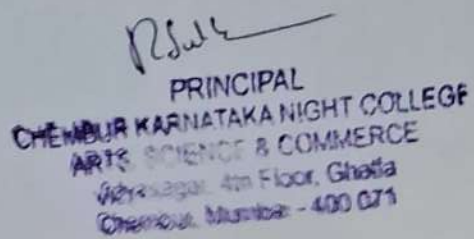 PRINCIPAL
CHEMBUR KARNATAKA NIGHT COLLEGE
ARTS SCIENCE & COMMERCE
4th Floor, Ghatla
Chembur, Mumbai - 400 071